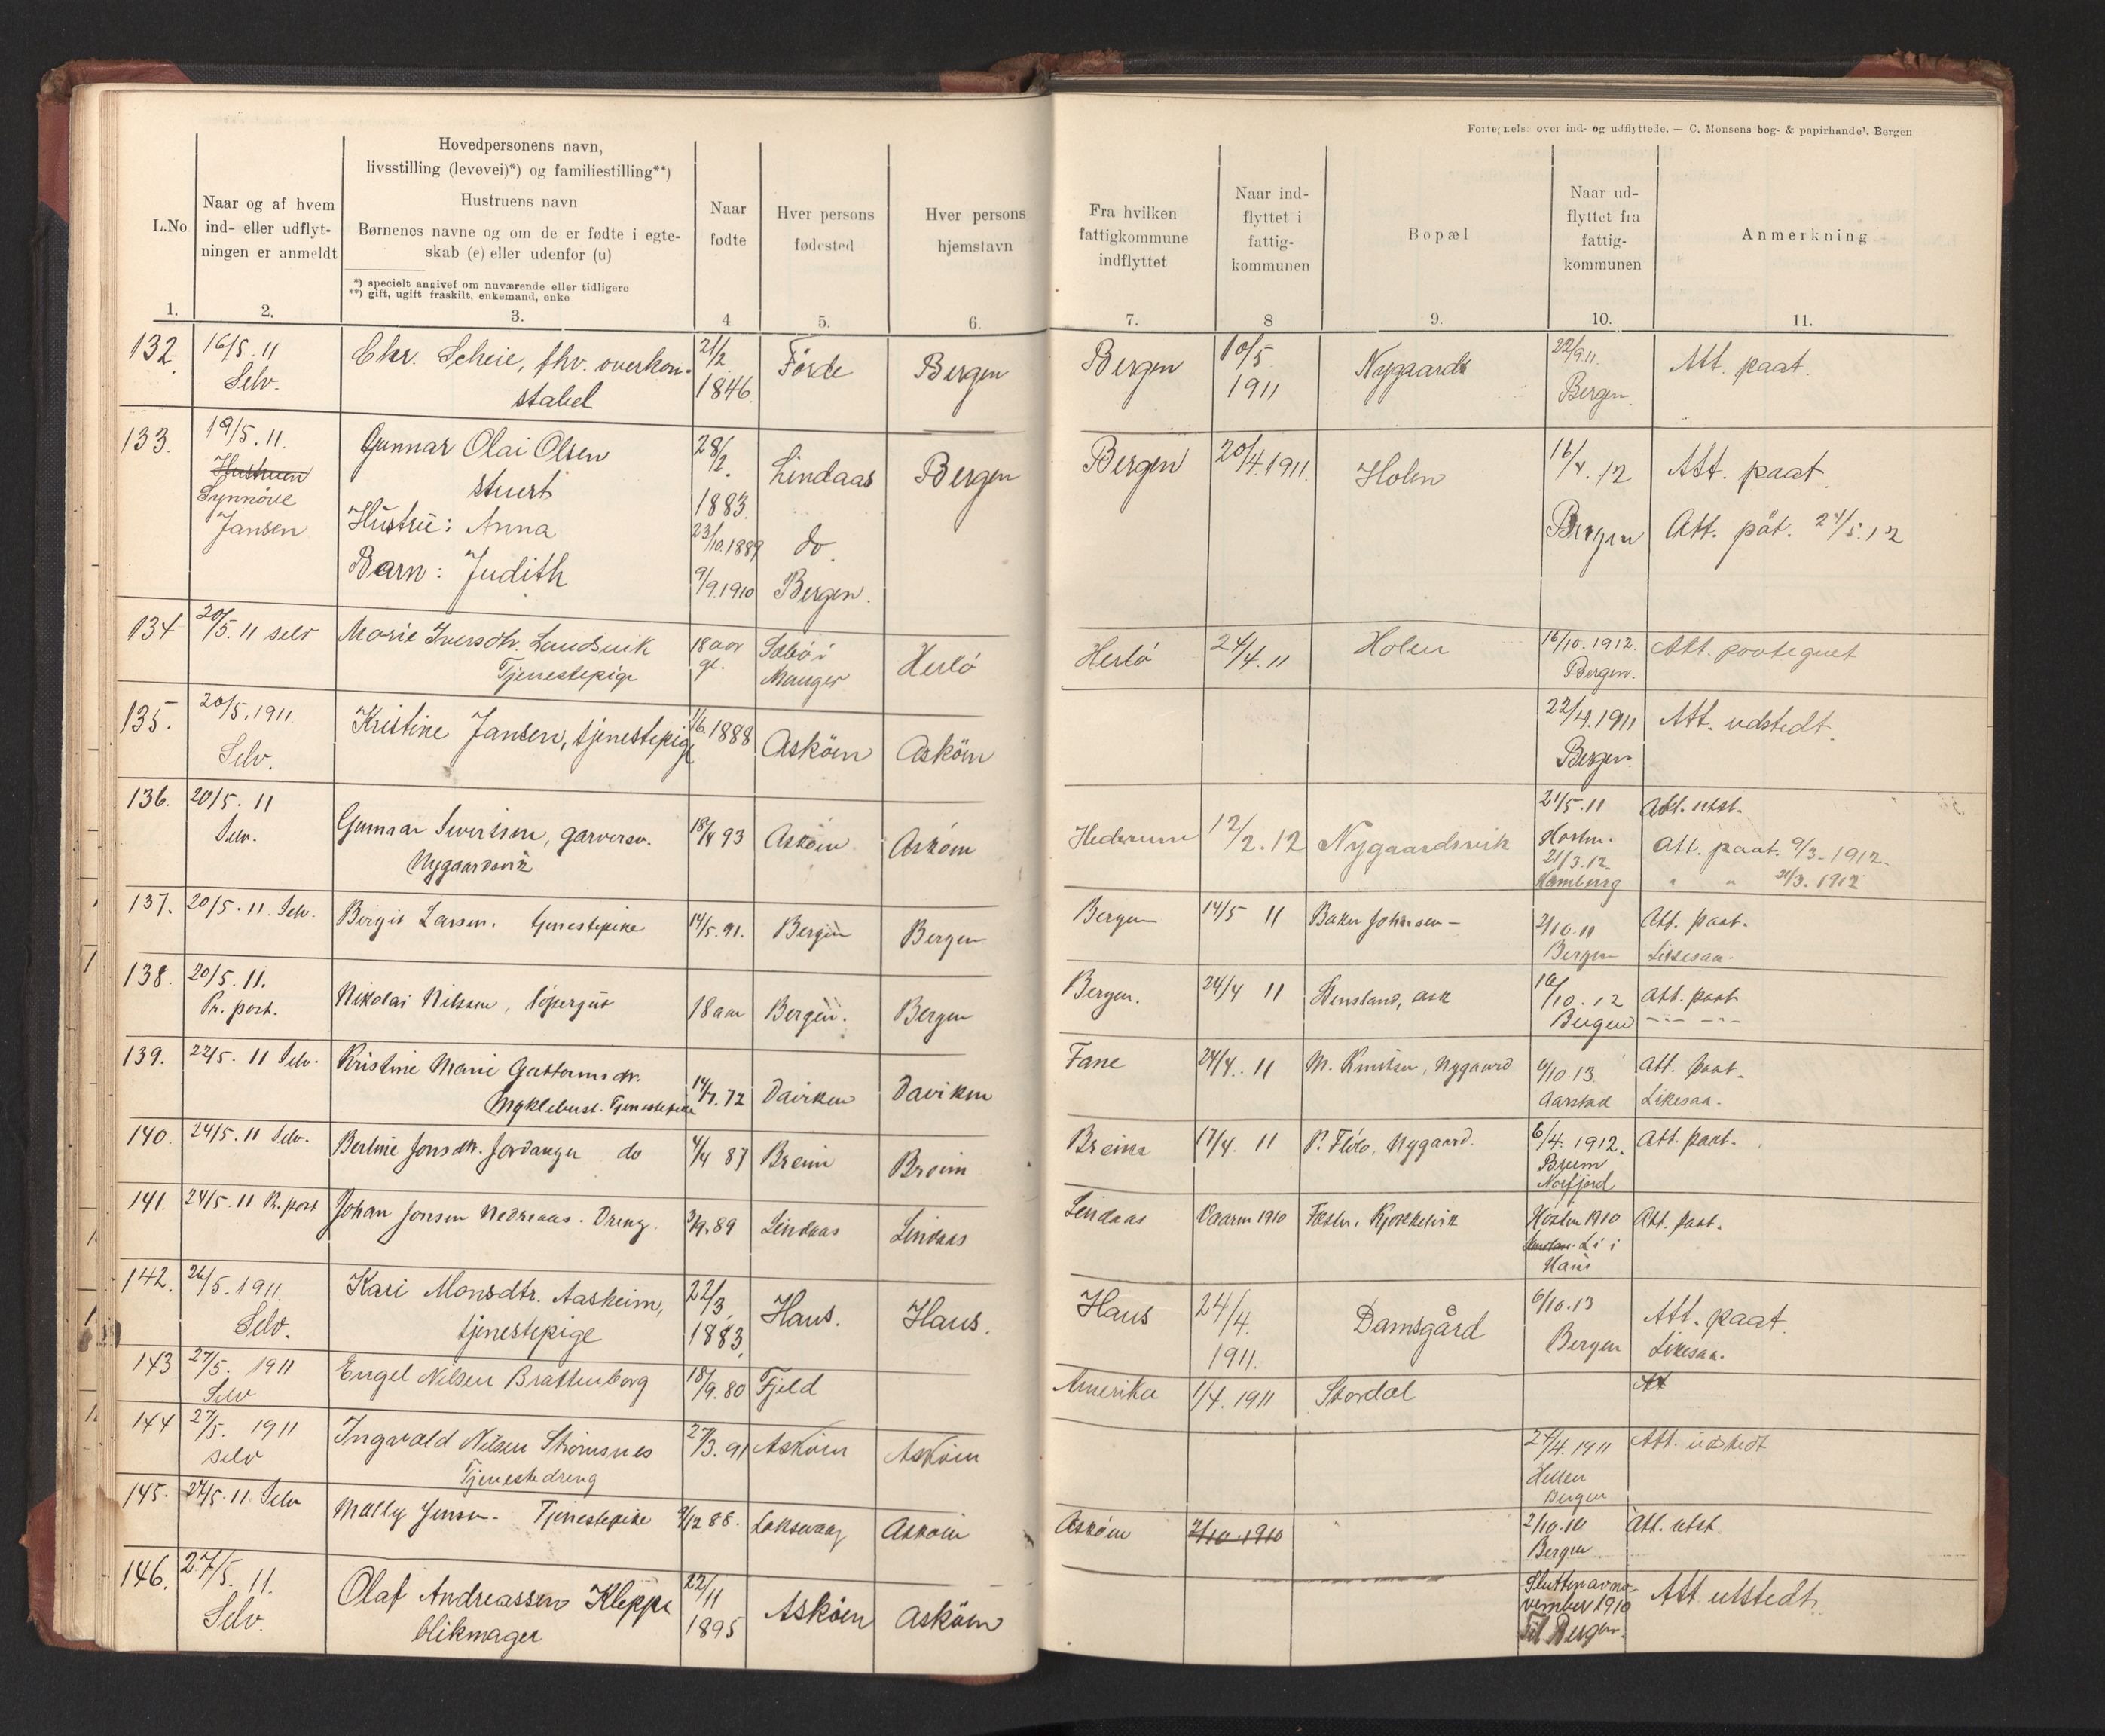 Fortegnelse over ind- og udflyttede. — C. Monsens bog- & papirhandel. Bergen
L.No.
Naar og af hvem
ind- eller udflyt-
ningen er anmeldt
Hovedpersonens navn,
livsstilling (levevei)*) og familiestilling**)
Hustruens navn
Børnenes navne og om de er fødte i egte-
skab (e) eller udenfor (u)
*) specielt angivet om nuværende eller tidligere
**) gift, ugift fraskilt, enkemand, enke
Naar
fødte
Hver persons
fødested
Hver persons
hjemstavn
Fra hvilken
fattigkommune
indflyttet
Naar ind-
flyttet i
fattig-
kommunen
Bopæl
Naar ud-
flyttet fra
fattig-
kommunen
Anmerkning
1. 2. 3. 4 5. 6. 7. 8 9. 10. 11.
132. 16/5.11 Chr. Scheie, fhv. overkon- 21/2. Førde Bergen Bergen 10/5 Nygaards 22/9 11. Att. paat.
Selv. stabel 1846. 1911 Bergen.
133. 19/5.11. Gunnar Olai Olsen 28/2. Lindaas Bergen Bergen 20/4.1911. Holen 16/4.12 Att. paat.
Hustruen stuert 1883.
Synnöve Hustru: Anna 23/10.1889 do Bergen Att. påt. 24/5.12
Jansen Barn: Judith 9/9.1910 Bergen.
134 20/5.11 selv Marie Iversdtr. Landsvik 18 aar Sæbö i Herlö Herlö 24/4.11 Holen 16/10.1912. Att. paategnet
Tjenestepige gl. Manger Bergen.
135. 20/5.1911. Kristine Jansen, tjenestepige 1/6.1888 Asköen Asköen 22/4.1911 Att. udstedt.
Selv. Bergen.
136. 20/5.11 Gunnar Sivertsen, garversv. 18/4 93 Asköen Asköen 12/2.12 Nygaardsvik 21/5.11 Att. utst.
Selv. Nygaardsvik 21/3.12 Att. paat. 9/3-1912-
Hamburg " " 21/3.1912
137. 20/5.11. Selv. Bergit Larsen. tjenestepike 14/5.91. Bergen Bergen Bergen 14/5 11 Baker Johnsen - 2/10.11 Att. paat.
Bergen Likesaa.
138. 20/5.11. Nikolai Nilssen, löpergut 18 aar Bergen. Bergen Bergen. 24/4 11 Stensland, Ask 10/10.12 Att. paat
Pr. post. Bergen
139. 22/5.11 Selv. Kristine Marie Guttormsdr. 14/7.72 Daviken Daviken Fane 24/4.11 M. Knutsen, Nygaard 6/10.13 Att. paat.
Myklebust. Tjenestepike Aarstad Likesaa.
140. 24/5.11 Selv. Bertine Jonsdtr. Jordanger do 4/4 87 Breim Breim Breim 17/4.11 P. Flölo, Nygaard. 6/4.1912. Att. paat.
Breim
Norfjord
141. 24/5.11 Pr. post Johan Jonsen Nedreaas. Dreng. 3/9.89 Lindaas Lindaas Lindaas Vaaren 1910 Kjøkkelvik Hösten 1910 Att. paat.
Li i
Haus
142. 26/5.1911. Kari Monsdtr. Aasheim, 22/3. Haus. Haus. Haus 24/4. Damsgård 6/10.13 Att. paat.
Selv. tjenestepige 1883. 1911. Bergen Likesaa.
143 27/5.1911 Engel Nilsen Brattenborg 18/9.80 Fjeld Amerika 1/4.1911 Stordal At
Selv
144 27/5.1911 Ingvald Nilsen Strömsnes 27/3.91 Asköen Asköen 27/4.1911 Att. udstedt
selv Tjenestedreng Hellen
Bergen
145. 27/5.11. Selv Mally Jensen. Tjenestepike 9/2 88. Laksevaag Asköen Asköen 2/10.1910 2/10.10 Att. utst.
Bergen
146. 27/5.11. Olaf Andreassen Kleppe 22/11 Asköen Asköen Slutten av no- Att utstedt.
Selv. blikmager 1895 vember 1910
Til Bergen.